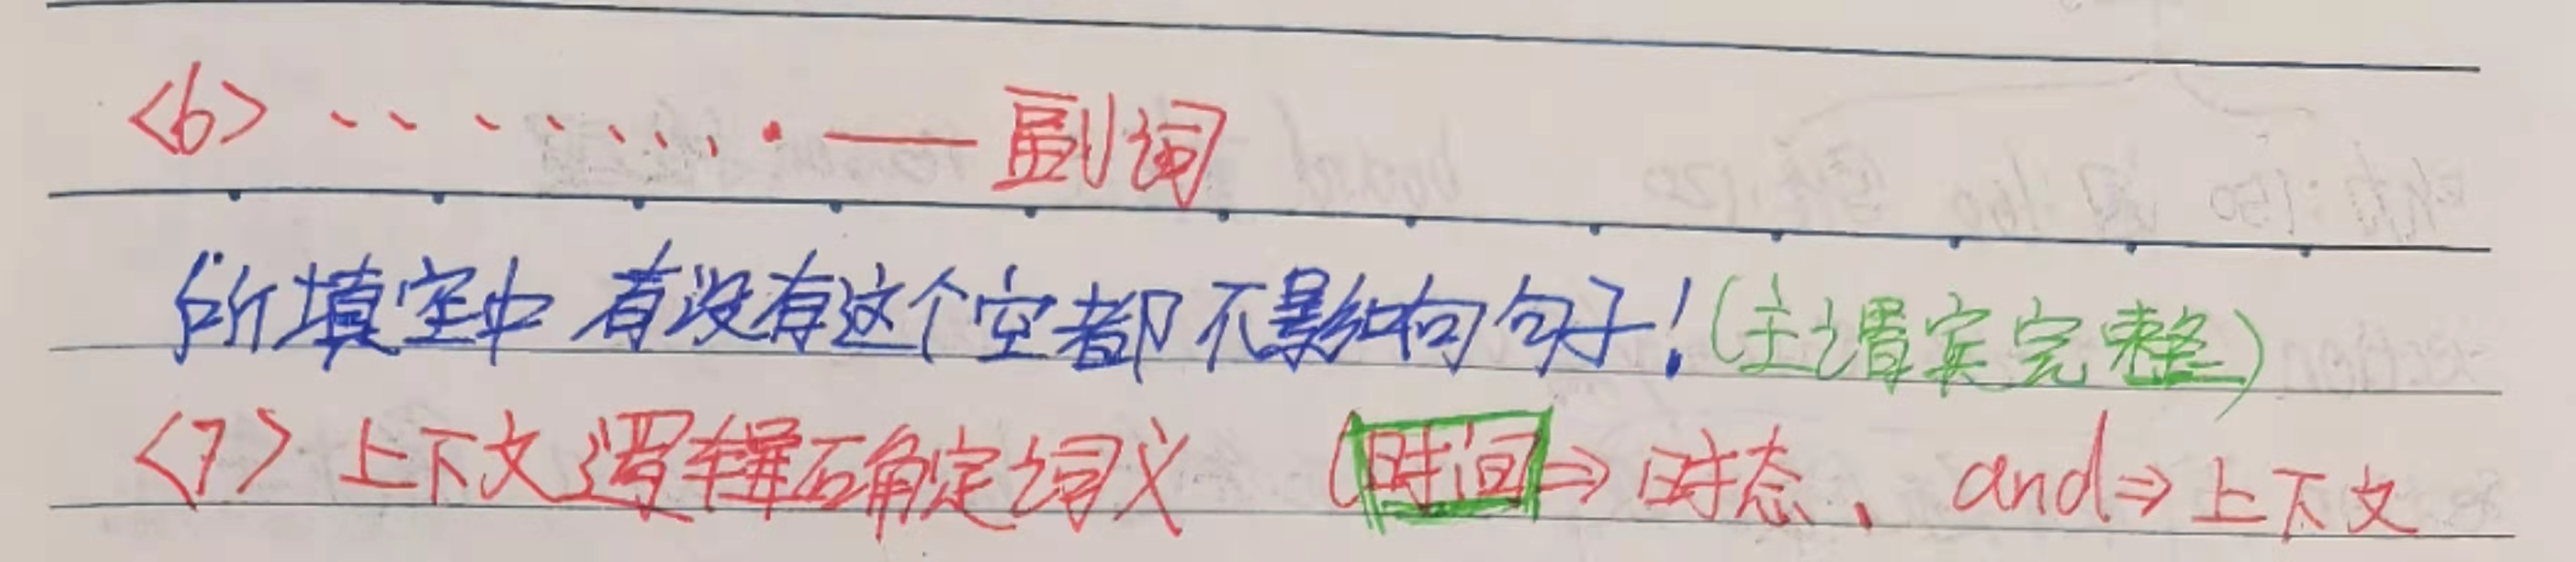 <6> ......... —— 副词
所填空中 有没有这个空都不影响句子！(主谓宾完整)
<7> 上下文逻辑确定词义 (时间⇒时态、and⇒上下文